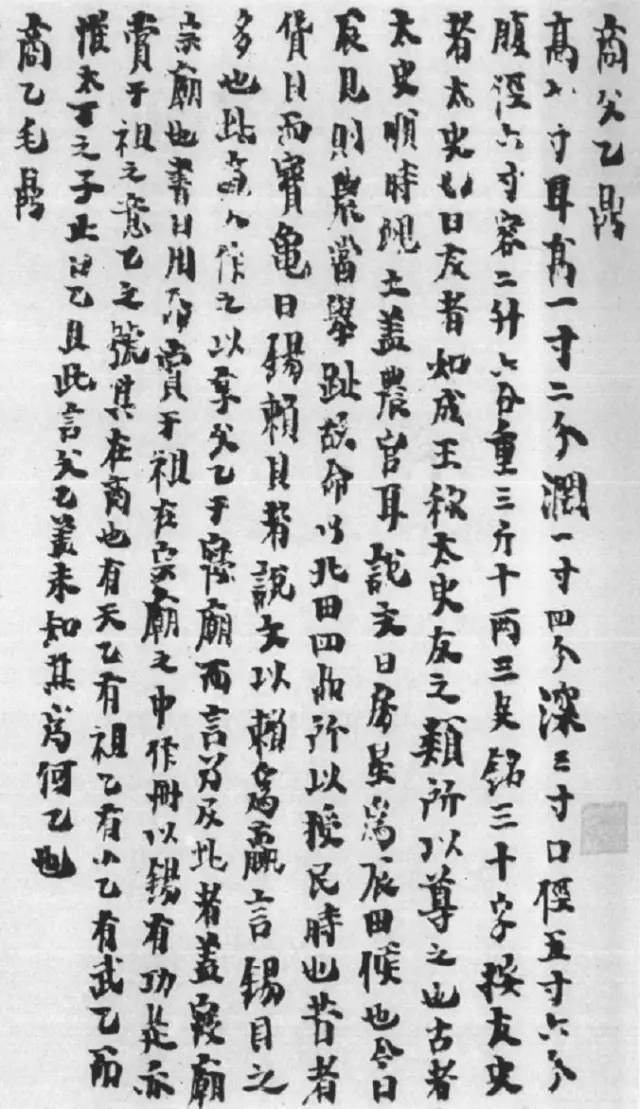 商父乙鼎
高六寸耳高一寸二分濶一寸四分深三寸口徑五寸六分
腹徑六寸容二升六合重三斤十兩三足銘三十字按友史
者太史也曰友者如成王称太史友之類所以尊之也古者
太史順時覛土盖農官耳說文曰房星為辰田候也今曰
辰見則農當舉趾故命以北田四品所以授民時也昔者
貨貝而寶龜曰錫賴貝者說文以賴為贏言錫貝之
多也此商人作之以享父乙于寢廟而言乃及此者盖寢廟
宗廟也書曰用命賞于祖在宗廟之中作冊以錫有功是亦
賞于祖之意乙之號其在商也有天乙有祖乙有小乙有武乙而
惟太丁之子止曰乙且此言父乙盖未知其為何乙也
商乙毛鼎